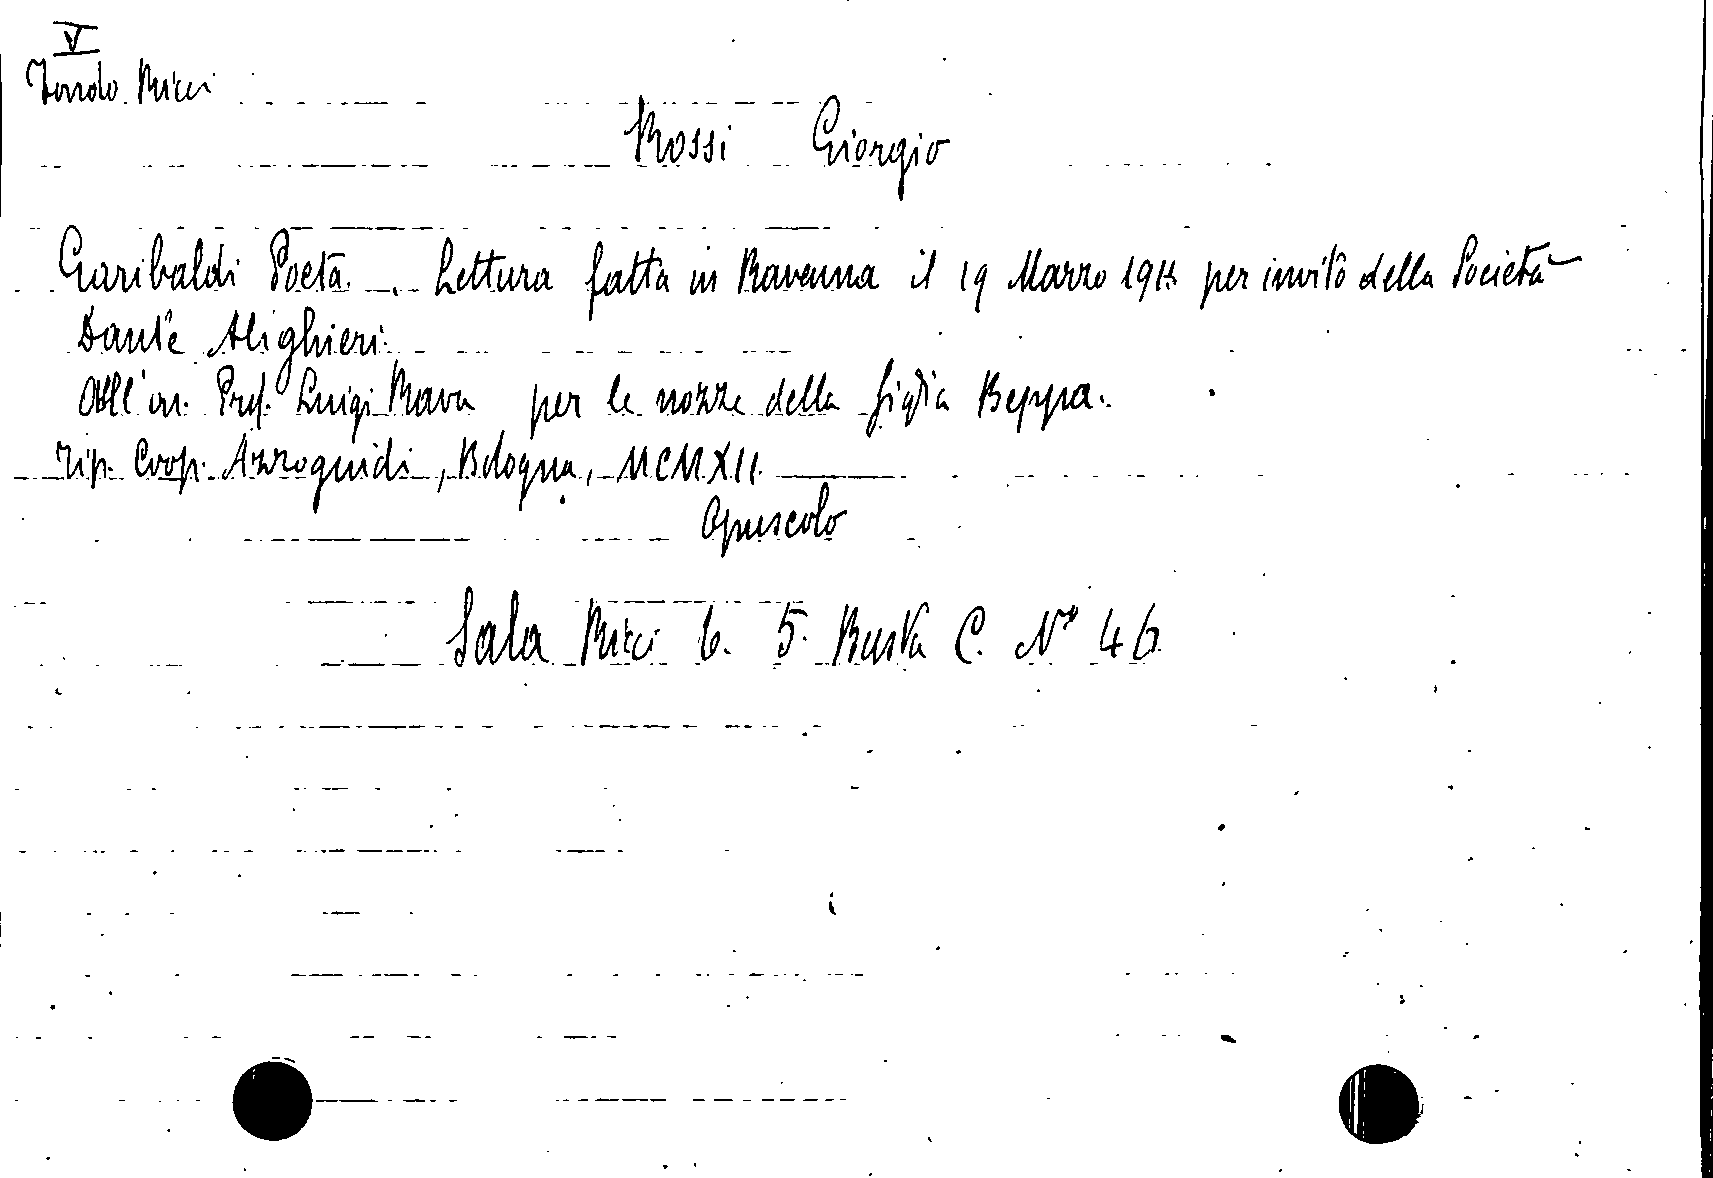 V
Fondo Ricci
Rossi Giorgio
Garibaldi Poeta. Lettura fatta in Ravenna il 19 Marzo 1911 per invito della Società
Dante Alighieri.
All'on. Prof. Luigi Rava per le nozze della figlia Beppa.
Tip. Coop. Azzoguidi, Bologna, MCMXII.
Opuscolo
Sala Ricci 6. 5. Busta C. N° 46